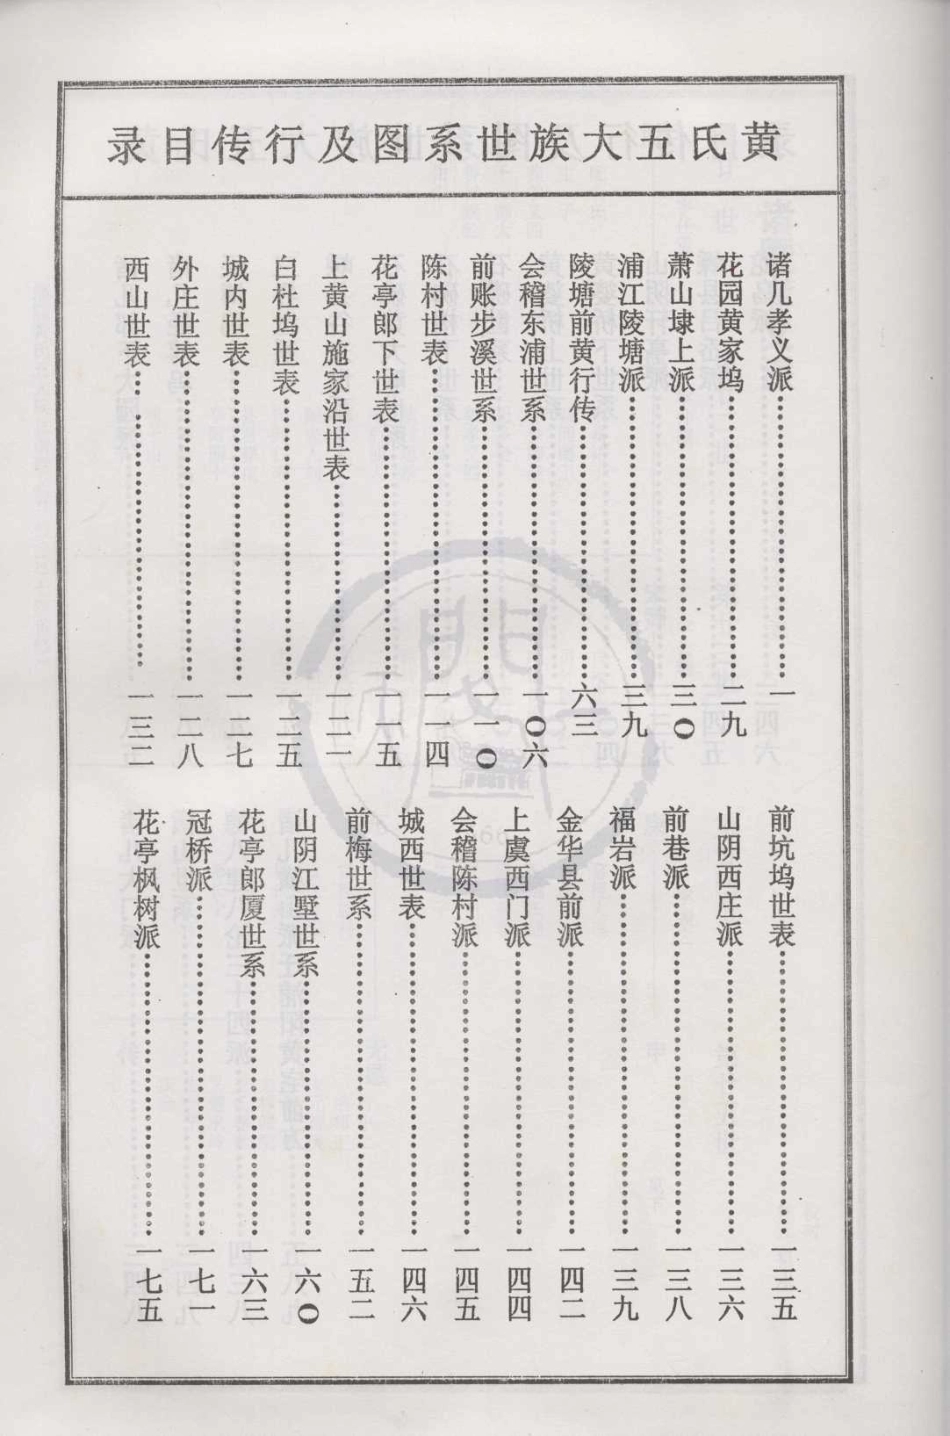 黄氏五大族世系图及行传目录
诸几孝义派……一
花园黄家坞……二九
萧山埭上派……三〇
浦江陵塘派……三九
陵塘前黄行传……六三
会稽东浦世系……一〇六
前账步溪世系……一一〇
陈村世表……一一四
花亭郎下世表……一一五
上黄山施家沿世表……一二一
白杜坞世表……一二五
城内世表……一二七
外庄世表……一二八
西山世表……一三二
前坑坞世表……一三五
山阴西庄派……一三六
前巷派……一三八
福岩派……一三九
金华县前派……一四二
上虞西门派……一四四
会稽陈村派……一四五
城西世表……一四六
前梅世系……一五二
山阴江墅世系……一六〇
花亭郎厦世系……一六三
冠桥派……一七一
花亭枫树派……一七五